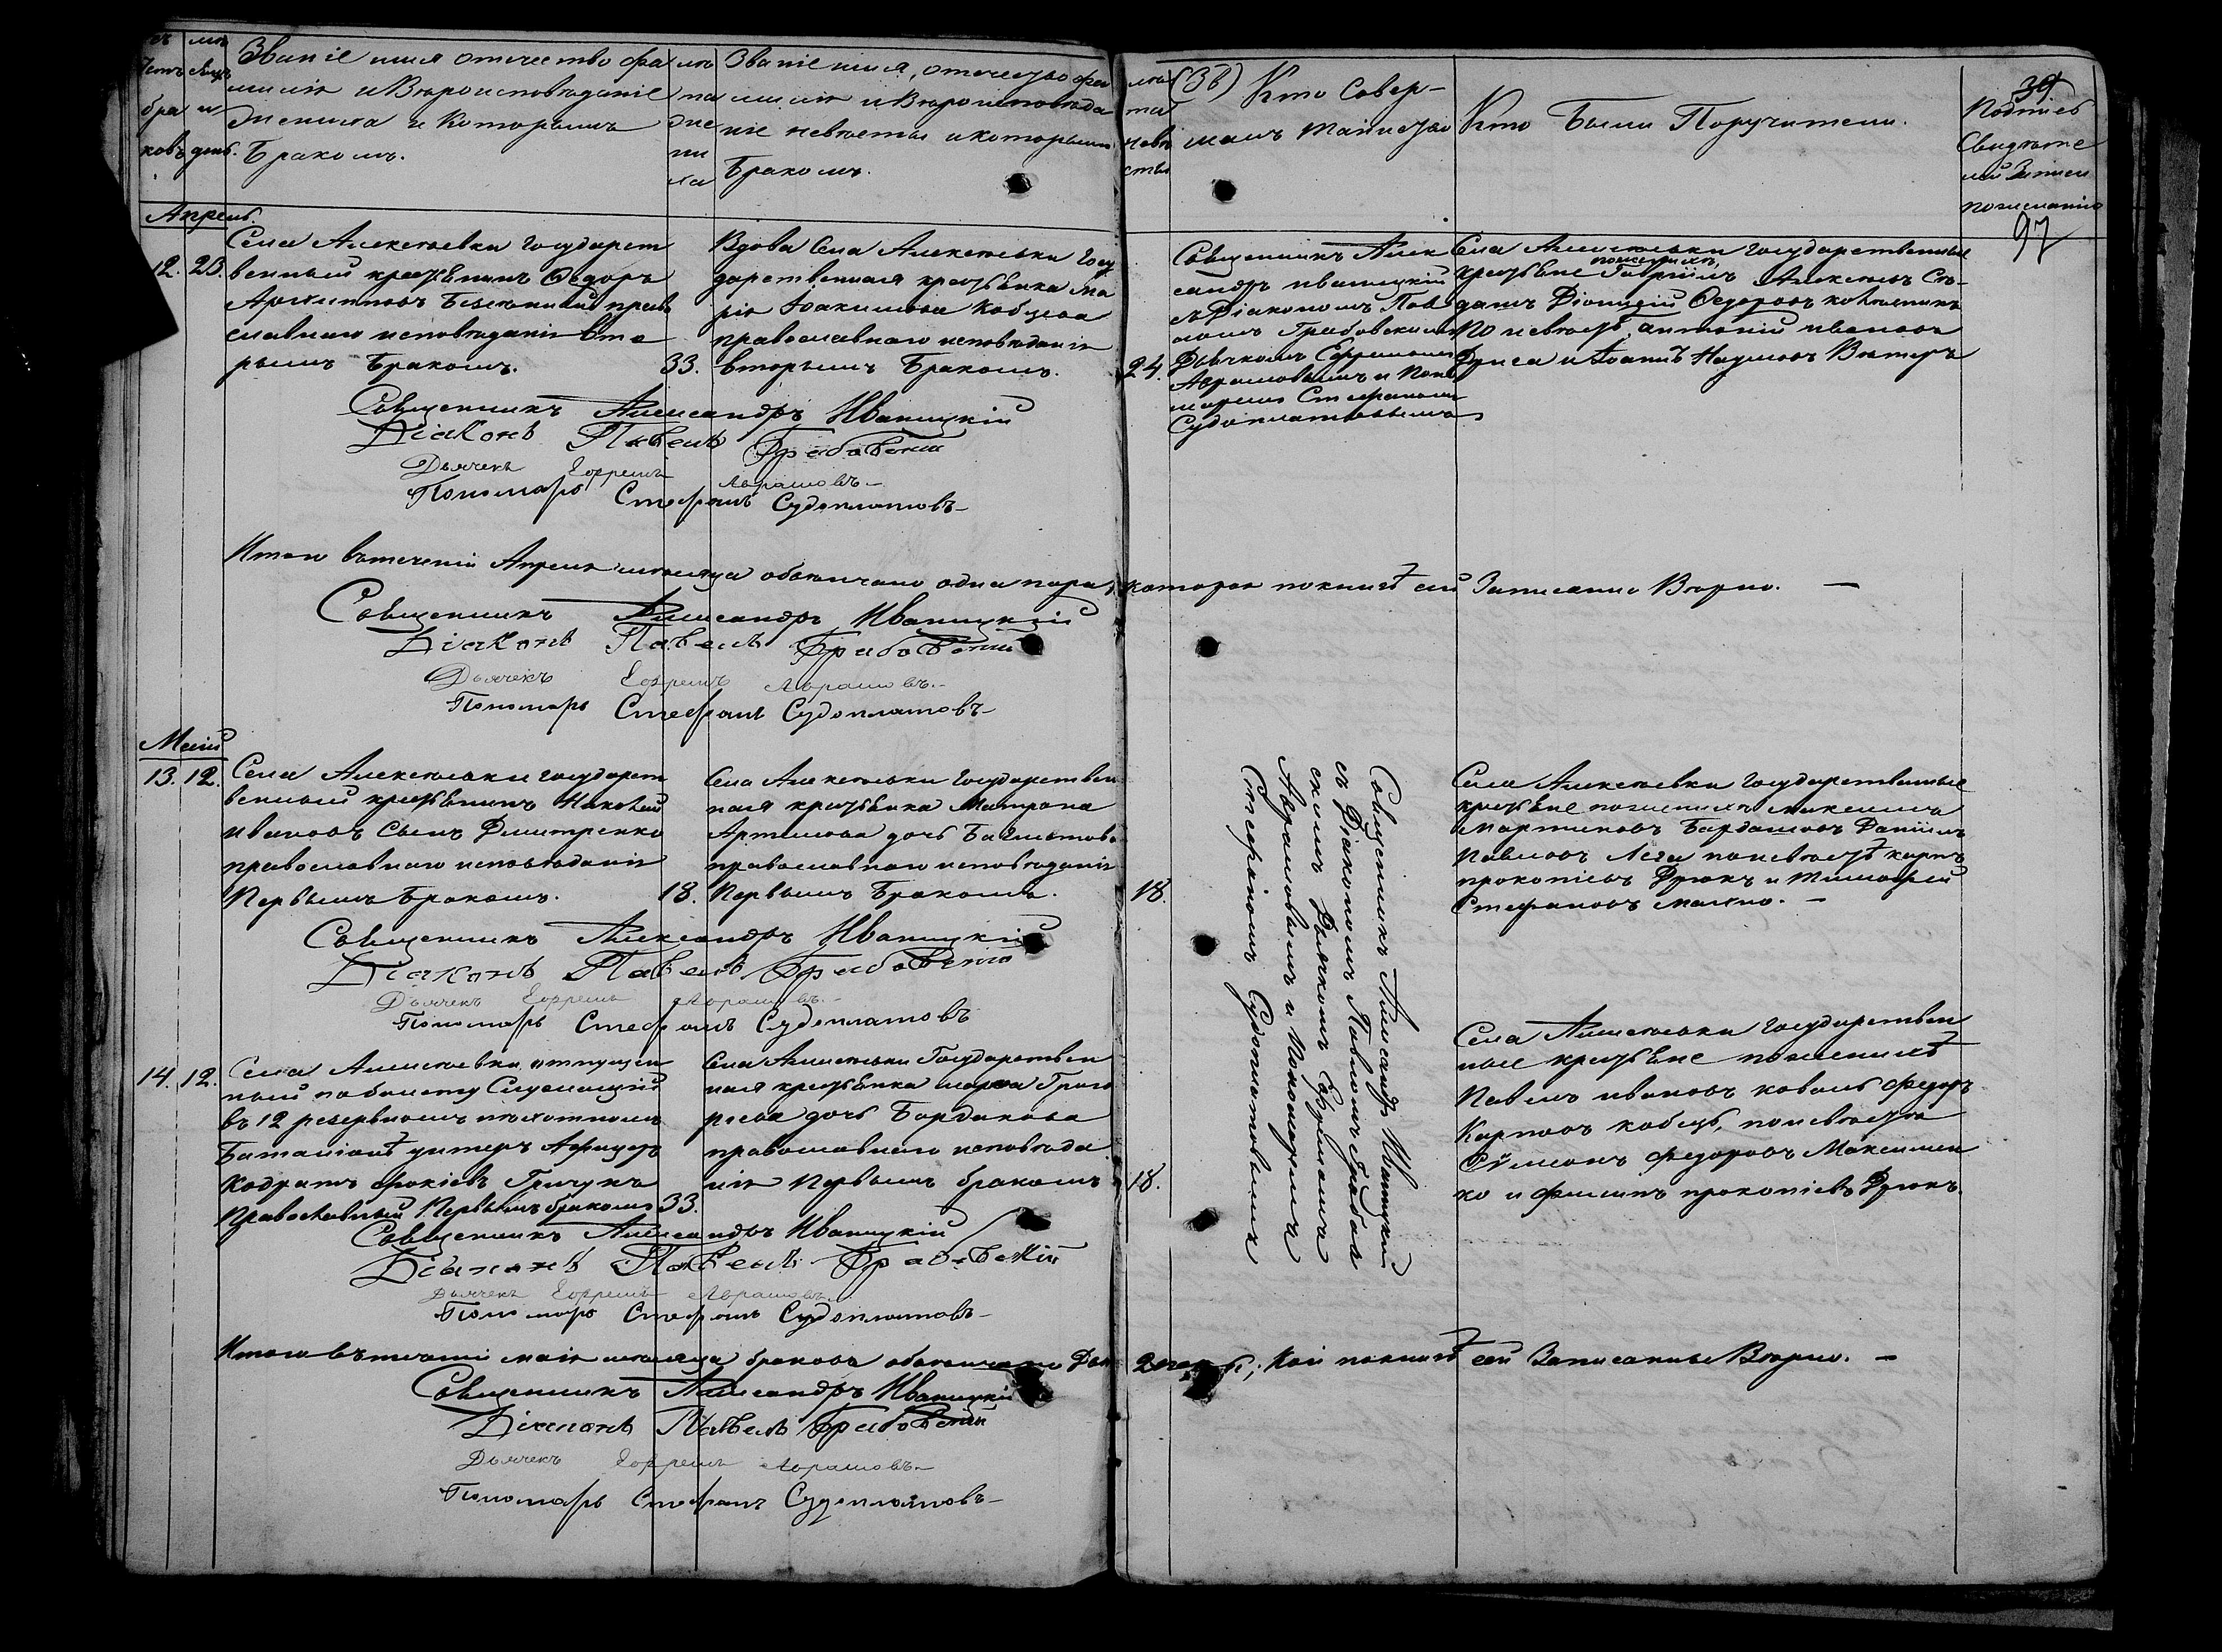 Званіе имя отечество фа
миля и Вѣроисповѣданіе
жениха и Которымъ
Бракомъ.
лѣ
та
же
ни
ха
Званіе имя, отечество фа
миля и Вѣроисповѣда
ніе невѣсты и которымъ
Бракомъ.
лѣ
та
невѣ
сты
(38) Кто Совер-
шалъ таинство
Кто Были Поручители.
39
Подпись
Свидѣте
лей Записи
по желанію
97
Апрель.
12. 23.
Села Алексѣевки государст
венный крестьянинъ Ѳедоръ
Архиповъ православнаго исповѣданія вто
рымъ Бракомъ.
33.
Вдова Села Алексѣевки Госу
дарственная крестьянка Ма
рія Іоакимова Кобцева
православнаго исповѣданія
вторымъ Бракомъ.
24.
Священникъ Алек
сандръ иваницкій
съ Діакономъ Пав
ломъ Грабовскимъ
Дьячкомъ Ефремомъ
Аврамовымъ и Поно
маремъ Стефаномъ
Судоплатовымъ
Села Алексѣевки государственные
крестьяне по женихѣ, Гавріилъ Алексѣевъ
Діонисій Ѳедоровъ
По невѣстѣ, антоній ивановъ
и Іоаннъ Наумовъ
Священникъ Александръ Иваницкій
Діаконъ Павелъ Грабовскій
Дьячекъ Ефремъ Аврамовъ
Пономарь Стефанъ Судоплатовъ
Итого втеченіи Апреля мѣсяца обвѣнчано одна пара, которая по книгѣ сей Записанна Вѣрно.
Священникъ Александръ Иваницкій
Діаконъ Павелъ Грабовскій
Дьячекъ Ефремъ Аврамовъ.
Пономарь Стефанъ Судоплатовъ
Маій
13. 12.
Села Алексѣевки государст
венный крестьянинъ Николай
ивановъ сынъ Дмитренко
православнаго исповѣданія
Первымъ Бракомъ.
18.
Села Алексѣевки Государствен
ная крестьянка Матрона
Артемова дочь
православнаго исповѣданія
Первымъ Бракомъ.
18.
Священникъ Александръ Иваницкій
съ Діакономъ Павломъ Грабов
скимъ Дьячкомъ Ефремомъ
Аврамовымъ и Пономаремъ
Стефаномъ Судоплатовымъ
Села Алексѣевки Государственные
крестьяне по женихѣ максимъ
Мартиновъ Даніилъ
Павловъ Лега по невѣстѣ карпъ
прокопіевъ Дрюкъ и тимофей
Стефановъ махно.
Священникъ Александръ Иваницкій
Діаконъ Павелъ Грабовскій
Дьячекъ Ефремъ Аврамовъ.
Пономарь Стефанъ Судоплатовъ
14. 12.
Села Алексѣевки отпущен
ный по билету Служащій
въ 12 резервномъ пѣхотномъ
Баталіонѣ унтеръ Афицеръ
Кодратъ фокіевъ Гричукъ
Православный Первымъ бракомъ
33.
Села Алексѣевки Государствен
ная крестьянка марѳа Григо
рьева дочь Бордакова
православнаго исповѣда
нія Первымъ бракомъ
18.
Села Алексѣевки государствен
ные крестьяне по женихѣ
Павелъ ивановъ коваль федоръ
Карповъ кобецъ, по невѣстѣ
Сѵмеонъ федоровъ Максимен
ко и филипъ прокопіевъ Дрюкъ.
Священникъ Александръ Иваницкій
Діаконъ Павелъ Грабовскій
Дьячекъ Ефремъ Аврамовъ
Пономарь Стефанъ Судоплатовъ
Итого втеченіи маія мѣсяца браковъ обвѣнчано Два, Кои по книгѣ сей Записанны Вѣрно.
Священникъ Александръ Иваницкій
Діаконъ Павелъ Грабовскій
Дьячекъ Ефремъ Аврамовъ
Пономарь Стефанъ Судоплатовъ